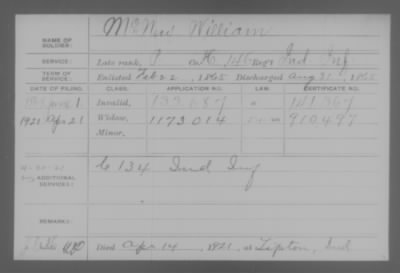 NAME OF SOLDIER: William
SERVICE: Late rank, P Co H, 146 Reg't Ind Inf
TERM OF SERVICE: Enlisted Feb 22, 1865 Discharged Aug 31, 1865
DATE OF FILING. CLASS. APPLICATION NO. LAW. CERTIFICATE NO.
Invalid,
1921 Apr 21 Widow, 1173014 910497
Minor,
ADDITIONAL SERVICES: G 134 Ind Inf
REMARKS:
Died Apr 14, 1921, at Tipton, Ind